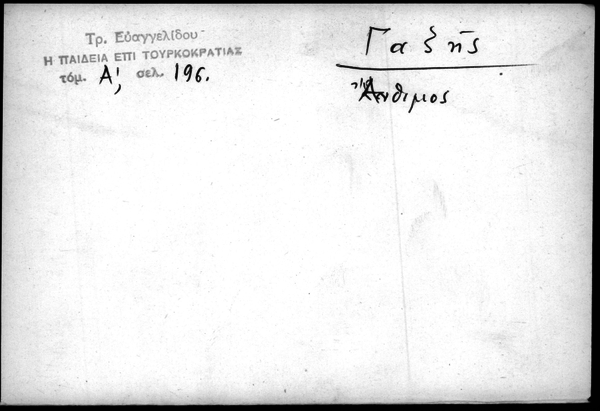 Τρ. Εὐαγγελίδου
Η ΠΑΙΔΕΙΑ ΕΠΙ ΤΟΥΡΚΟΚΡΑΤΙΑΣ
τόμ. Α', σελ. 196.
Γαζῆς
Ἄνθιμος